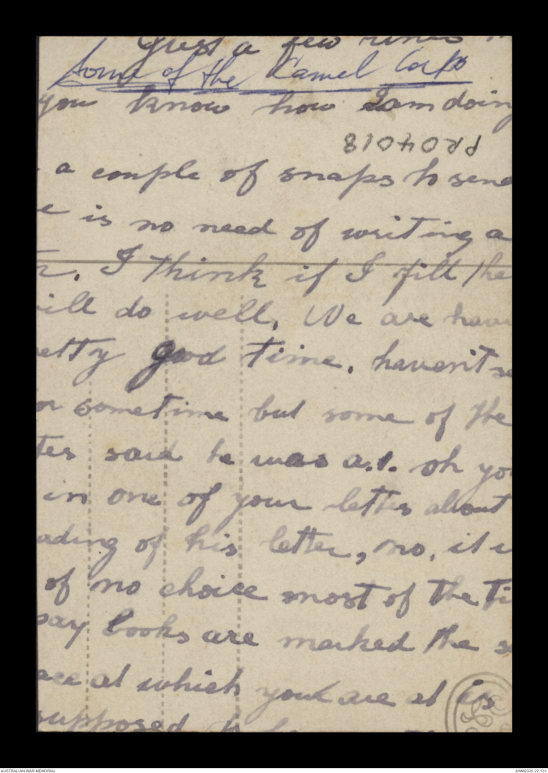 Just a few lines
Some of the Camel Corps
you know how I am doing
PR04018
a couple of snaps to send
e is no need of writing a
r. I think if I fill the
ill do well, We are havi
etty good time. haven't se
or sometime but some of the
tes said he was a.1. oh you
in one of your letters about
ading of his letter, no, it i
of no choice most of the ti
pay books are marked the s
ace at which you are at is
supposed to
AUSTRALIAN WAR MEMORIAL